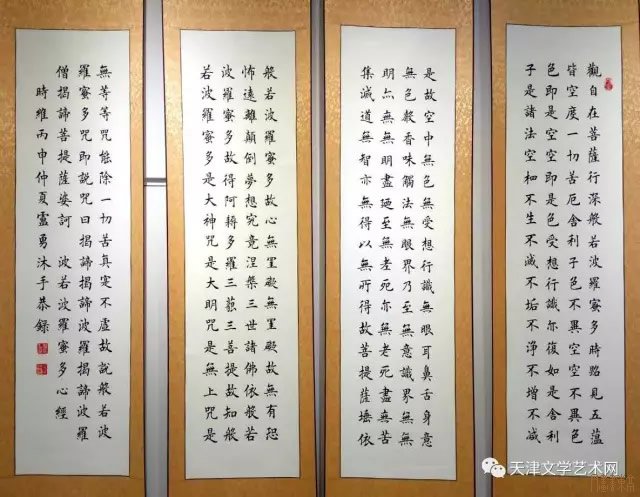 觀自在菩薩行深般若波羅蜜多時照見五蘊
皆空度一切苦厄舍利子色不異空空不異色
色即是空空即是色受想行識亦復如是舍利
子是諸法空相不生不滅不垢不净不增不減
是故空中無色無受想行識無眼耳鼻舌身意
無色聲香味觸法無眼界乃至無意識界無無
明亦無無明盡廼至無老死亦無老死盡無苦
集滅道無智亦無得以無所得故菩提薩埵依
般若波羅蜜多故心無罣礙無罣礙故無有恐
怖遠離顛倒夢想究竟涅槃三世諸佛依般若
波羅蜜多故得阿耨多羅三藐三菩提故知般
若波羅蜜多是大神咒是大明咒是無上咒是
無等等咒能除一切苦真寔不虛故說般若波
羅蜜多咒即說咒曰揭諦揭諦波羅揭諦波羅
僧揭諦菩提薩婆訶 波若波羅蜜多心經
時維丙申仲夏盧勇沐手恭錄
天津文学艺术网